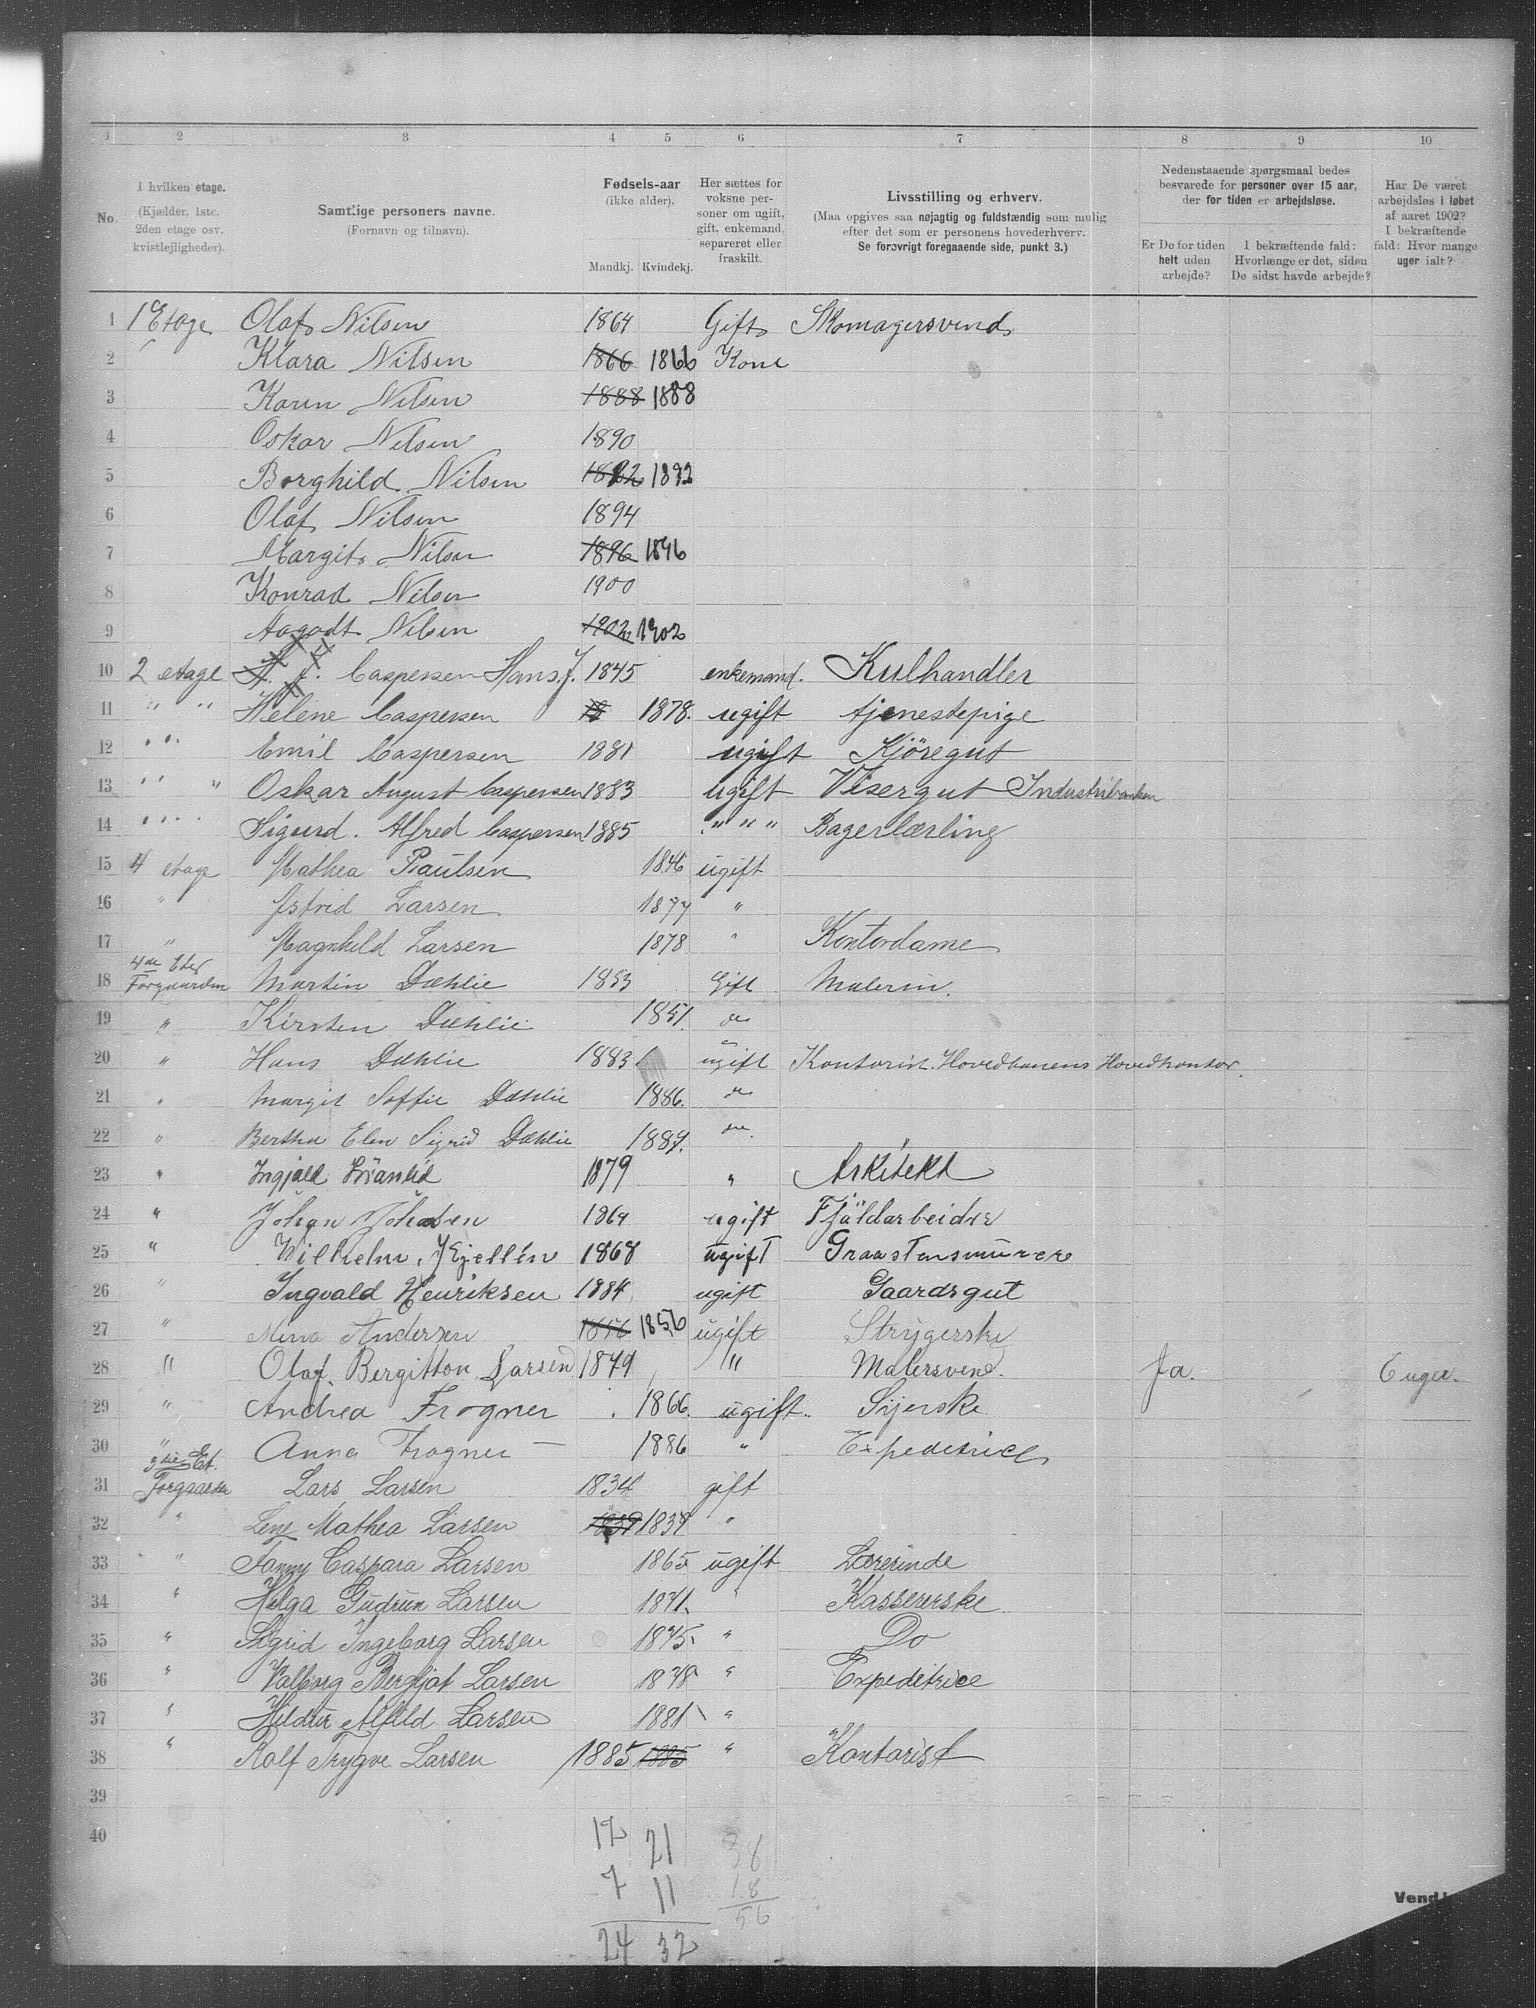 1 2 3 4 5 6 7 8 9 10
No.
I hvilken etage.
(Kjælder, 1ste, 2den etage osv. kvistlejligheder).
Samtlige personers navne.
(Fornavn og tilnavn).
Fødsels-aar
(ikke alder).
Mandkj. Kvindekj.
Her sættes for voksne personer om ugift, gift, enkemand, separeret eller fraskilt.
Livsstilling og erhverv.
(Maa opgives saa nøjagtig og fuldstændig som mulig efter det som er personens hovederhverv.
Se forøvrigt foregaaende side, punkt 3.)
Nedenstaaende spørgsmaal bedes besvarede for personer over 15 aar, der for tiden er arbejdsløse.
Er De for tiden helt uden arbejde?
I bekræftende fald: Hvorlænge er det, siden De sidst havde arbejde?
Har De været arbejdsløs i løbet af aaret 1902? I bekræftende fald: Hvor mange uger ialt?
1 1 Etage Olaf Nilsen 1864 Gift Skomagersvend
2 Klara Nilsen 1866 1866 Kone
3 Karen Nilsen 1888 1888
4 Oskar Nilsen 1890
5 Borghild Nilsen 1892 1892
6 Olaf Nilsen 1894
7 Margit Nilsen 1896 1896
8 Konrad Nilsen 1900
9 Nilsen 1902 1902
10 2 etage H. J. Caspersen Hans. J. 1845 enkemand. Kulhandler
11 " " Helene Caspersen 1878. ugift tjenestepige
12 " " Emil Caspersen 1881 ugift Kjöregut
13 " " Oskar August Caspersen 1883 ugift Visergut Industribanken
14 " " Sigurd. Alfred Caspersen 1885 " " " Bagerlærling
15 4 etage Mathea Paulsen 1846 ugift
16 " Astrid Larsen 1877 "
17 " Magnhild Larsen 1878 " Kontordame
18 4de Etg Forgaarden Martin Dæhlie 1853 Gift Malerm.
19 " Kirsten Dæhlie 1851. do
20 " Hans Dæhlie 1883 ugift Kontorist. Hovedbanens Hovedkontor.
21 " Margit Soffie Dæhlie 1886. do
22 " Bertha Elen Sigrid Dæhlie 1887. do
23 " Ingjald 1879 " Arkitekt
24 " Johan Johansen 1864 ugift Fjäldarbeider
25 " Vilhelm Kjellén 1868 ugift Graastensmurere
26 " Ingvald Henriksen 1884 ugift Gaardsgut
27 " Mina Andersen 1856 1856 ugift Strygerske
28 " Olaf. Bergitton Larsen 1879 " Malersvend. Ja. 6 uger.
29 " Andrea Frogner 1866. ugift. Sÿerske
30 " Anna Frogner — 1886 " Expeditrice
31 3die Et. Forgaarden Lars Larsen 1834 gift
32 " Lene Mathea Larsen 1839 1839 "
33 " Fanny Caspara Larsen 1865 ugift Lærerinde
34 " Helga Gudrun Larsen 1871. " Kassererske
35 " Sigrid Ingeborg Larsen 1875. " Do
36 " Valborg Bergliot Larsen 1878 " Expeditrice
37 " Hildur Alfild Larsen 1881 "
38 " Rolf Trygve Larsen 1885 1885 " Kontorist
39
40
17 21 38
7 11 18
24 32 56
Vend